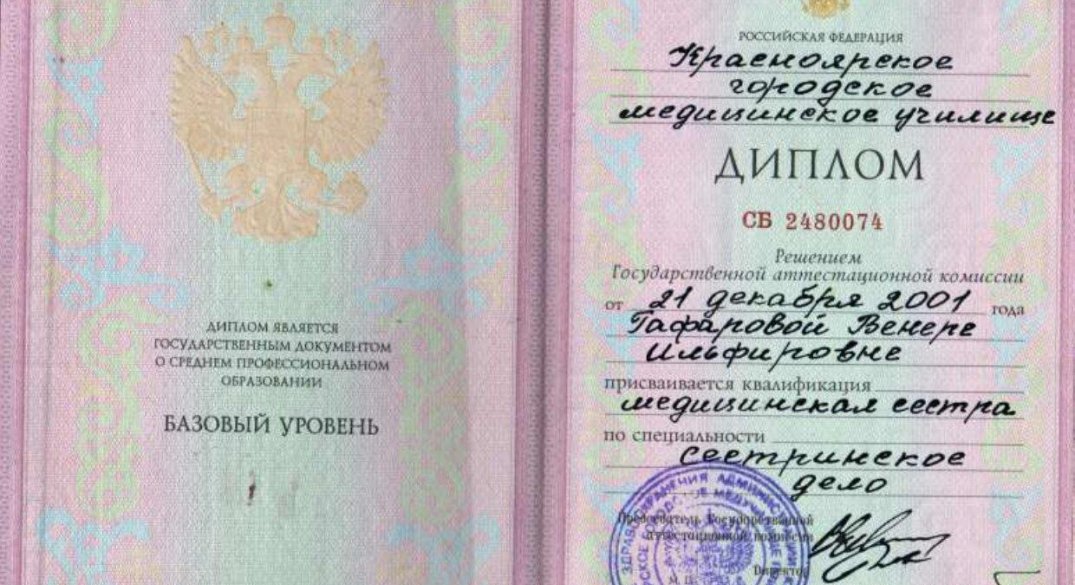 ДИПЛОМ ЯВЛЯЕТСЯ
ГОСУДАРСТВЕННЫМ ДОКУМЕНТОМ
О СРЕДНЕМ ПРОФЕССИОНАЛЬНОМ
ОБРАЗОВАНИИ
БАЗОВЫЙ УРОВЕНЬ
РОССИЙСКАЯ ФЕДЕРАЦИЯ
Красноярское
городское
медицинское училище
ДИПЛОМ
СБ 2480074
Решением
Государственной аттестационной комиссии
от 21 декабря 2001 года
Гафаровой Венере
Ильфировне
присваивается квалификация
медицинская сестра
по специальности
сестринское
дело
Председатель Государственной
аттестационной комиссии
Директор
М.П.